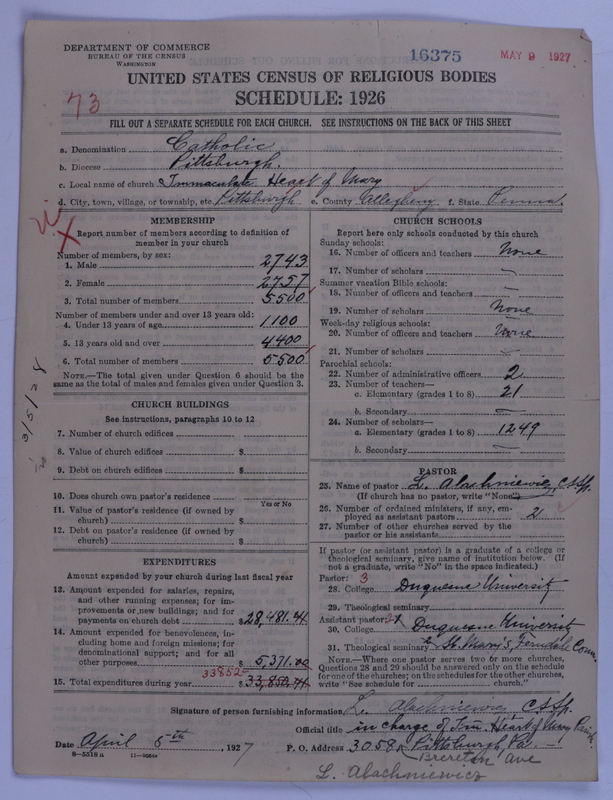 DEPARTMENT OF COMMERCE
BUREAU OF THE CENSUS
WASHINGTON
16375
MAY 9 1927
UNITED STATES CENSUS OF RELIGIOUS BODIES
SCHEDULE: 1926
73
FILL OUT A SEPARATE SCHEDULE FOR EACH CHURCH. SEE INSTRUCTIONS ON THE BACK OF THIS SHEET
a. Denomination Catholic
b. Diocese Pittsburgh.
c. Local name of church Immaculate Heart of Mary
d. City, town, village, or township, etc. Pittsburgh e. County Allegheny. f. State Penna.
MEMBERSHIP
Report number of members according to definition of
member in your church
Number of members, by sex:
1. Male 2743
2. Female 2757
3. Total number of members 5500
Number of members under and over 13 years old:
4. Under 13 years of age 1100
5. 13 years old and over 4400
6. Total number of members 5500
NOTE.—The total given under Question 6 should be the
same as the total of males and females given under Question 3.
CHURCH BUILDINGS
See instructions, paragraphs 10 to 12
7. Number of church edifices
8. Value of church edifices $
9. Debt on church edifices $
10. Does church own pastor's residence
Yes or No
11. Value of pastor's residence (if owned by
church) $
12. Debt on pastor's residence (if owned by
church) $
EXPENDITURES
Amount expended by your church during last fiscal year
13. Amount expended for salaries, repairs,
and other running expenses; for im-
provements or new buildings; and for
payments on church debt $28,481.44
14. Amount expended for benevolences, in-
cluding home and foreign missions; for
denominational support; and for all
other purposes $5,371.00
33852
15. Total expenditures during year $33,852.44
CHURCH SCHOOLS
Report here only schools conducted by this church
Sunday schools:
16. Number of officers and teachers None
17. Number of scholars —
Summer vacation Bible schools:
18. Number of officers and teachers —
19. Number of scholars None
Week-day religious schools:
20. Number of officers and teachers None
21. Number of scholars —
Parochial schools:
22. Number of administrative officers 2
23. Number of teachers—
a. Elementary (grades 1 to 8) 21
b. Secondary —
24. Number of scholars—
a. Elementary (grades 1 to 8) 1249
b. Secondary —
PASTOR
25. Name of pastor L. Alachniewicz, C.S.Sp.
(If church has no pastor, write "None")
26. Number of ordained ministers, if any, em-
ployed as assistant pastors 2
27. Number of other churches served by the
pastor or his assistants
If pastor (or assistant pastor) is a graduate of a college or
theological seminary, give name of institution below. (If
not a graduate, write "No" in the space indicated.)
Pastor: 3
28. College Duquesne University
29. Theological seminary
Assistant pastor:
30. College Duquesne University
31. Theological seminary & St. Mary's, Ferndale Conn.
NOTE.—Where one pastor serves two or more churches,
Questions 28 and 29 should be answered only on the schedule
for one of the churches; on the schedules for the other churches,
write "See schedule for church."
Signature of person furnishing information L. Alachniewicz C.S.Sp.
Official title in charge of Imm. Heart of Mary Parish
Date April 8th, 1927 P. O. Address 3058 Pittsburgh, Pa. —
Brereton Ave
8—5518 a
L. Alachniewicz